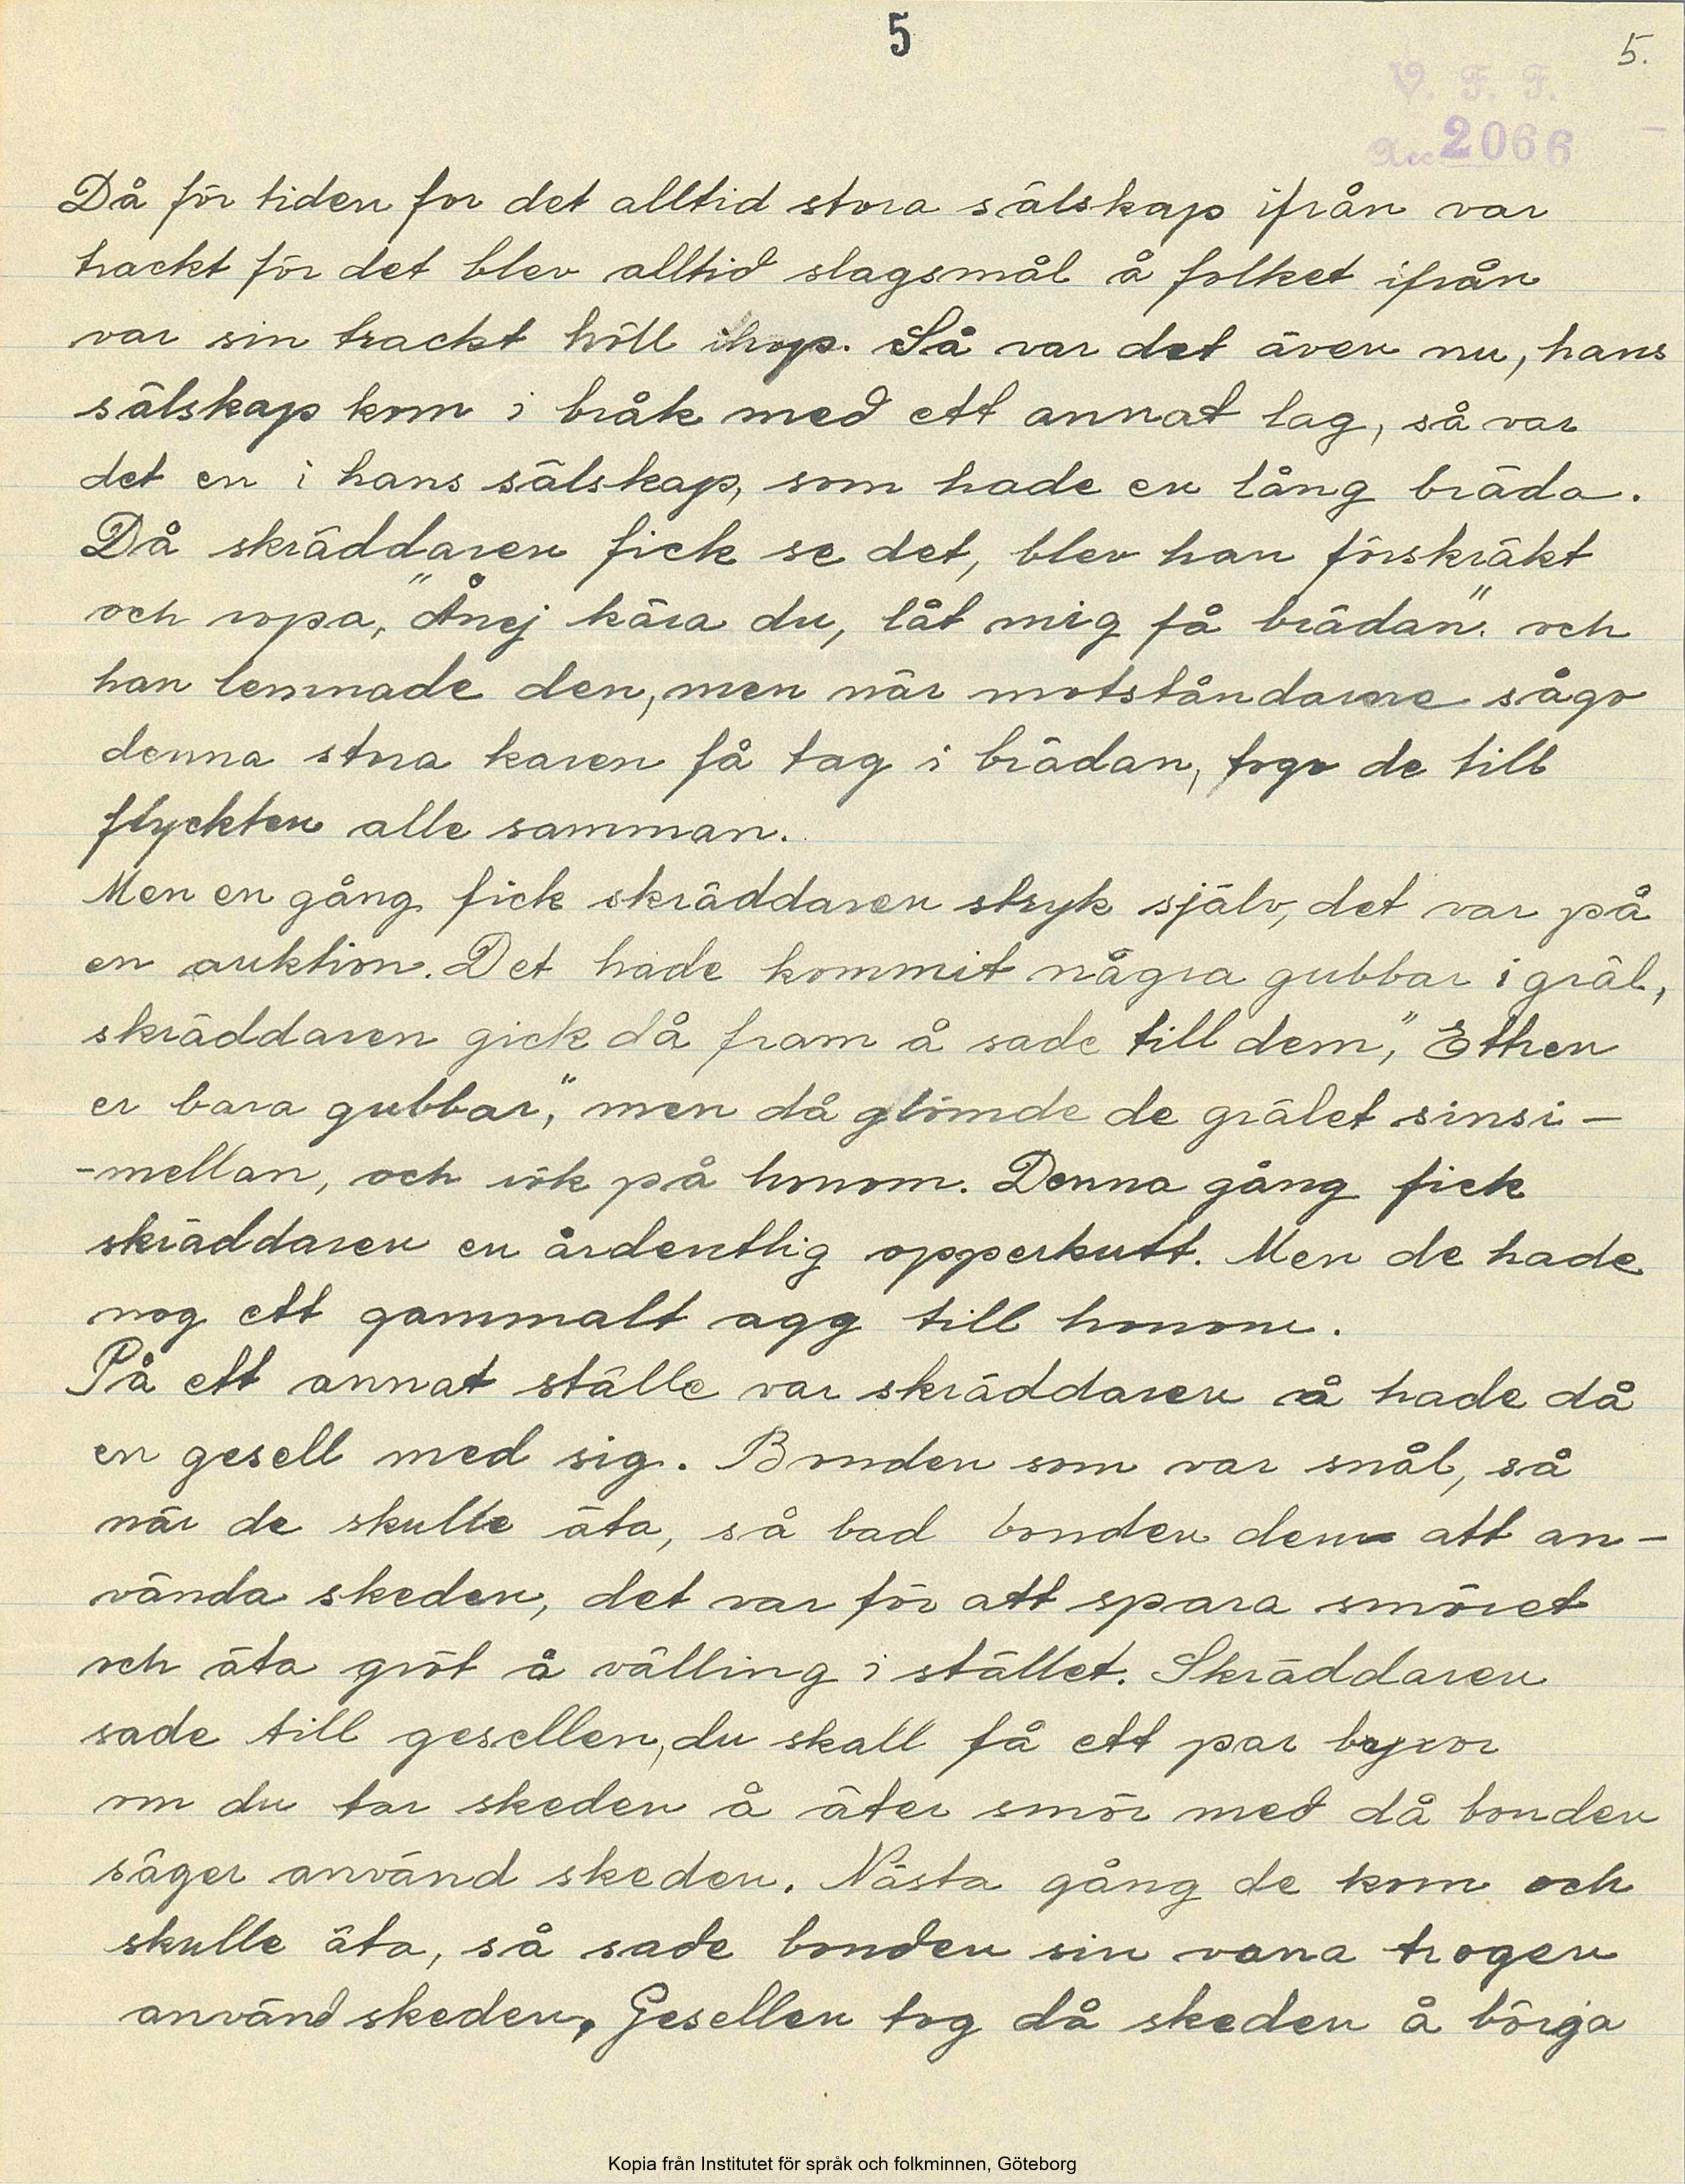 5
5.
V. F. F.
Acc 2066
Då för tiden for det alltid stora sälskap ifrån var
trackt för det blev alltid slagsmål å folket ifrån
var sin trackt höll ihop. Så var det även nu, hans
sälskap kom i bråk med ett annat lag, så var
det en i hans sälskap, som hade en lång bräda.
Då skräddaren fick se det, blev han förskräkt
och ropa, "Ånej kära du, låt mig få brädan". och
han lemnade den, men när motståndarne sågo
denna stora karen få tag i brädan, togo de till
flyckten alle samman.
Men en gång fick skräddaren stryk själv, det var på
en auktion. Det hade kommit några gubbar i gräl,
skräddaren gick då fram å sade till dem, "Ethen
er bara gubbar," men då glömde de grälet sinsi-
-mellan, och rök på honom. Denna gång fick
skräddaren en årdentlig opperkutt. Men de hade
nog ett gammalt agg till honom.
På ett annat ställe var skräddaren å hade då
en gesell med sig. Bonden som var snål, så
när de skulle äta, så bad bonden dem att an-
vända skeden, det var för att spara smöret
och äta gröt å välling i stället. Skräddaren
sade till gesellen, du skall få ett par byxor
om du tar skeden å äter smör med då bonden
säger använd skeden. Nästa gång de kom och
skulle äta, så sade bonden sin vana trogen
använd skeden. Gesellen tog då skeden å börja
Kopia från Institutet för språk och folkminnen, Göteborg